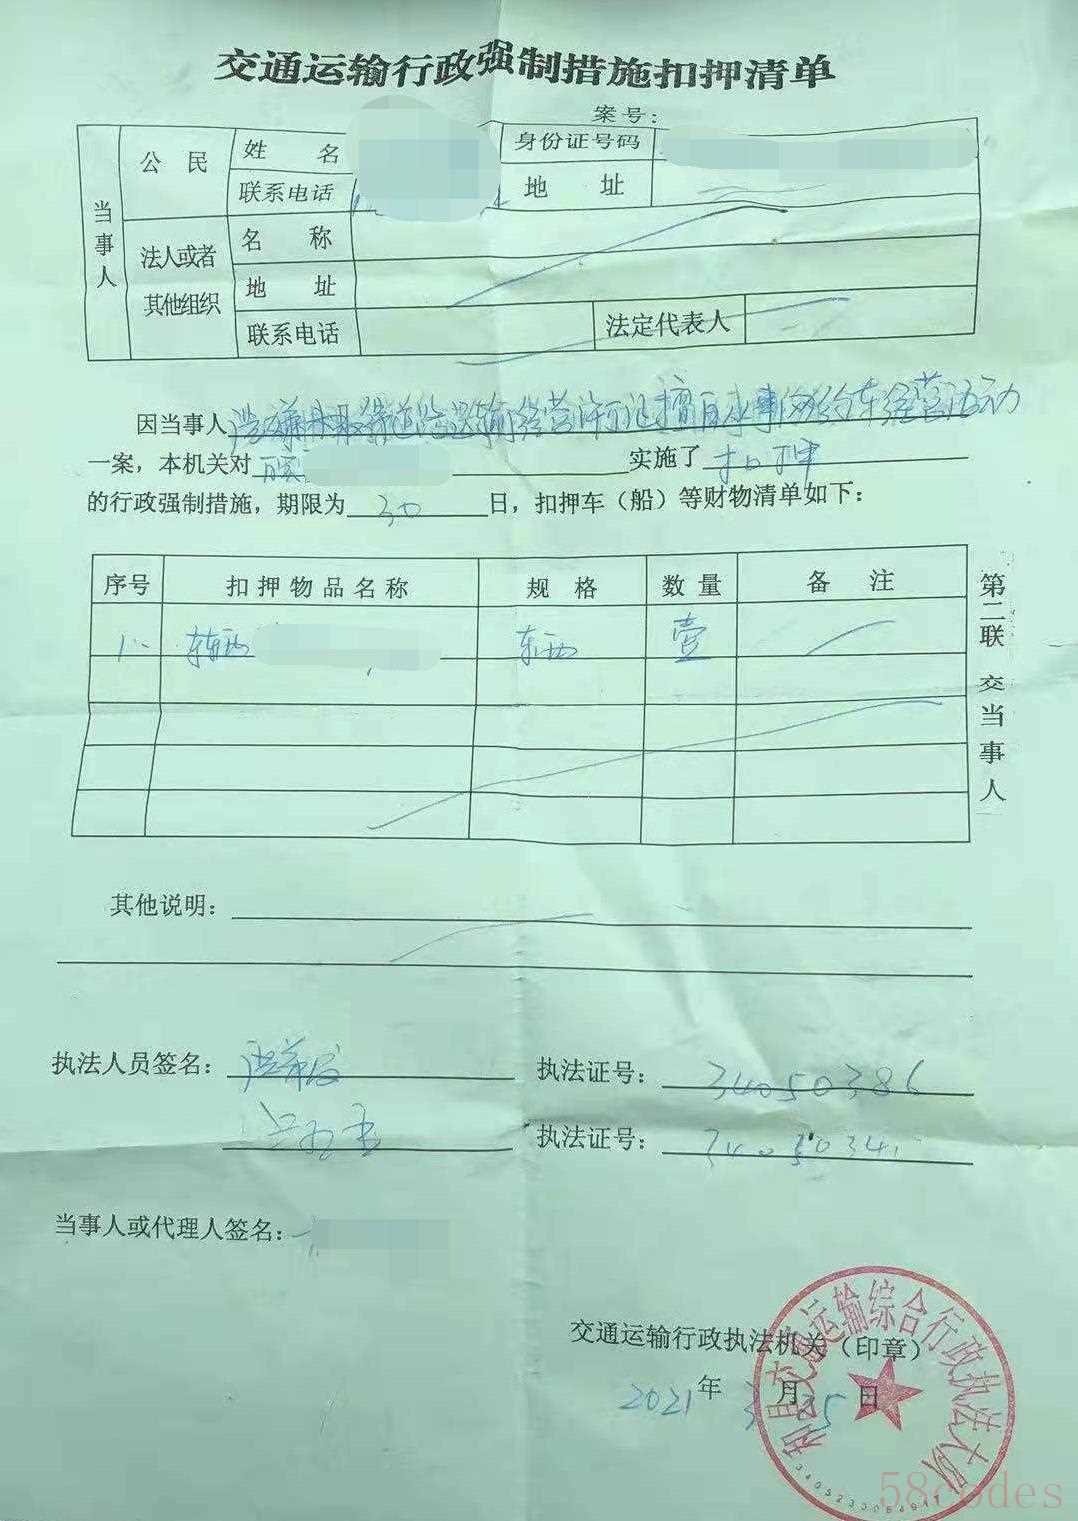 交通运输行政强制措施扣押清单
案号:
当事人
公民
姓名
身份证号码
联系电话
地址
法人或者其他组织
名称
地址
联系电话
法定代表人
因当事人涉嫌未取得道路运输经营许可证擅自从事网约车经营活动
一案，本机关对 实施了扣押
的行政强制措施，期限为30日，扣押车（船）等财物清单如下：
序号 扣押物品名称 规格 数量 备注
1. 车辆 车辆 壹
第二联 交当事人
其他说明：
执法人员签名： 执法证号：34050386
执法证号：
当事人或代理人签名：
交通运输行政执法机关（印章）
2021年3月25日
和县交通运输综合行政执法大队
58codes